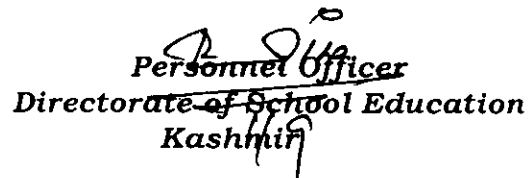 Personnel Officer
Directorate of School Education
Kashmir